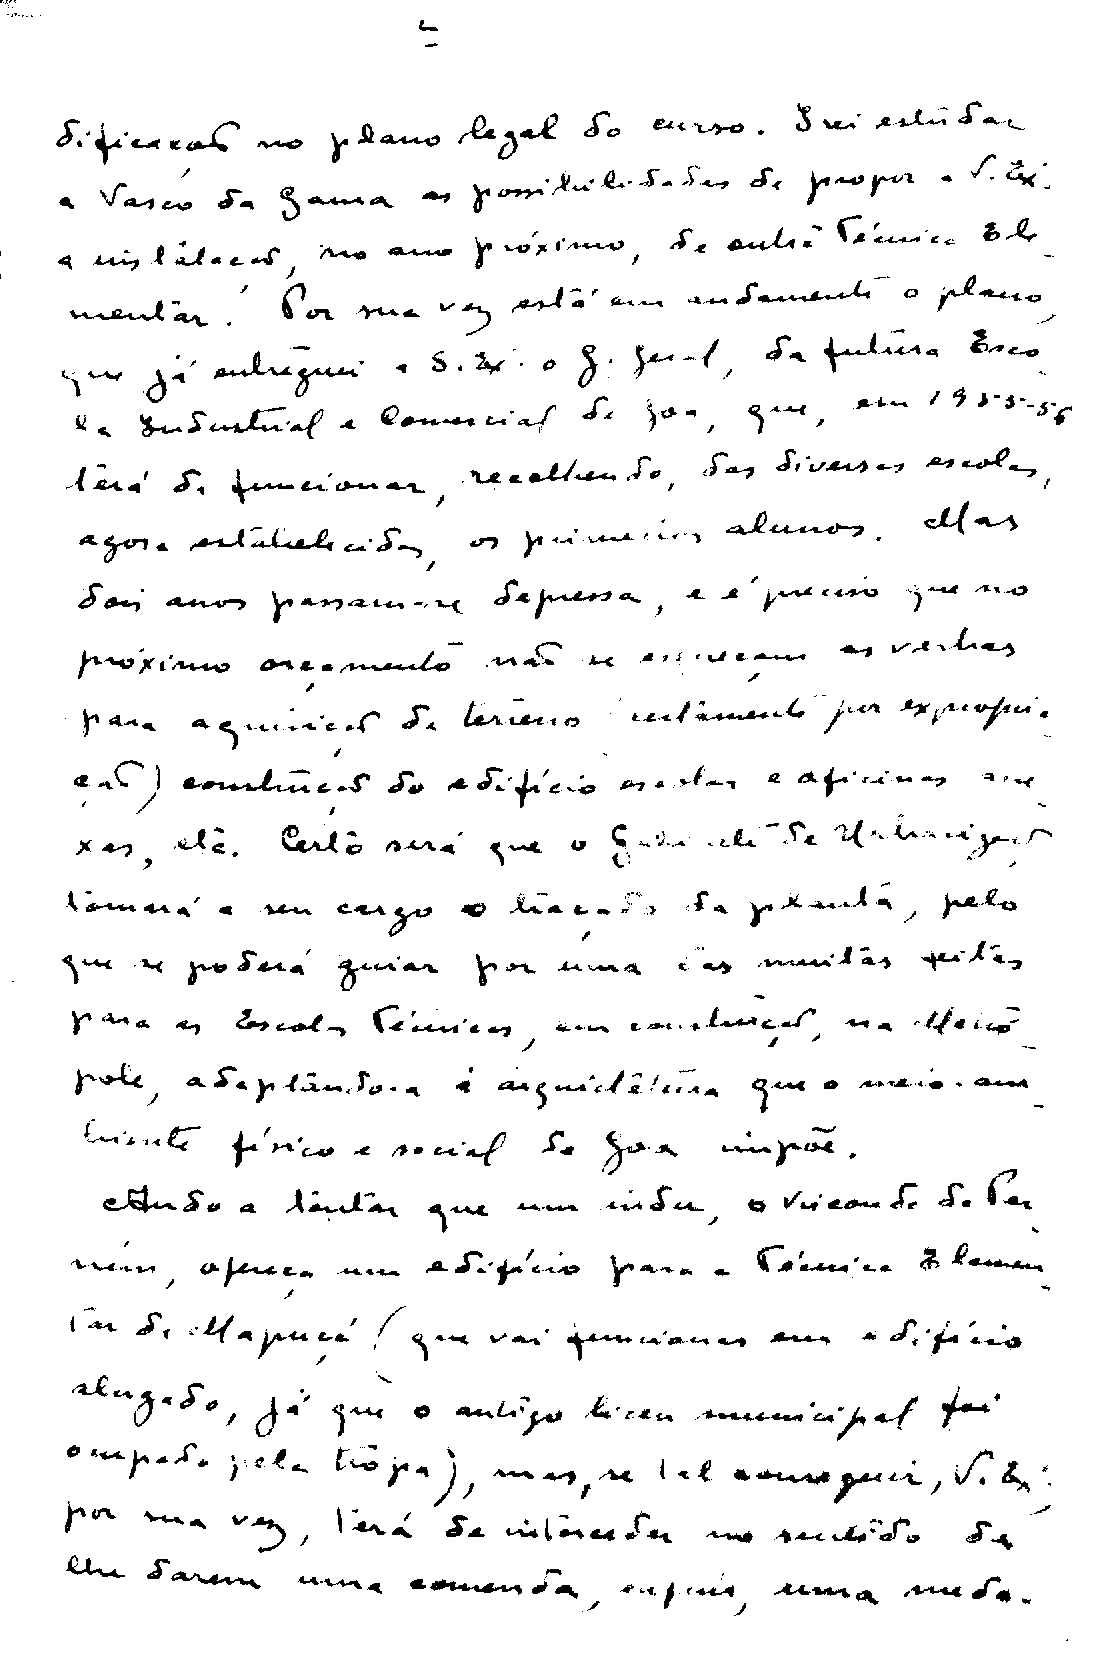 dificação no plano legal do curso. Irei estudar
a Vasco da Gama as possibilidades de propor a V. Ex.ª
a instalação, no ano próximo, de outra Técnica Ele-
mentar. Por sua vez está em andamento o plano,
que já entreguei a S. Ex.ª o G. Geral, da futura Esco-
la Industrial e Comercial de Goa, que, em 1955-56
terá de funcionar, recolhendo, das diversas escolas,
agora estabelecidas, os primeiros alunos. Mas
dois anos passam-se depressa, e é preciso que no
próximo orçamento não se esqueçam as verbas
para aquisição de terreno (certamente por expropria-
ção) construção do edifício escolar e oficinas ane-
xas, etc. Certo será que o Gabinete de Urbanização
tomará a seu cargo o traçado da planta, pelo
que se poderá guiar por uma das muitas feitas
para as Escolas Técnicas, em construção, na Metró-
pole, adaptando-a à arquitetura que o meio-am-
biente físico e social de Goa impõe.
Ando a tentar que um indu, o Visconde de Per-
nem, ofereça um edifício para a Técnica Elemen-
tar de Mapuçá (que vai funcionar em edifício
alugado, já que o antigo liceu municipal foi
ocupado pela tropa), mas, se tal conseguir, V. Ex.ª,
por sua vez, terá de interceder no sentido de
lhe darem uma comenda, ou pelo menos, uma meda-